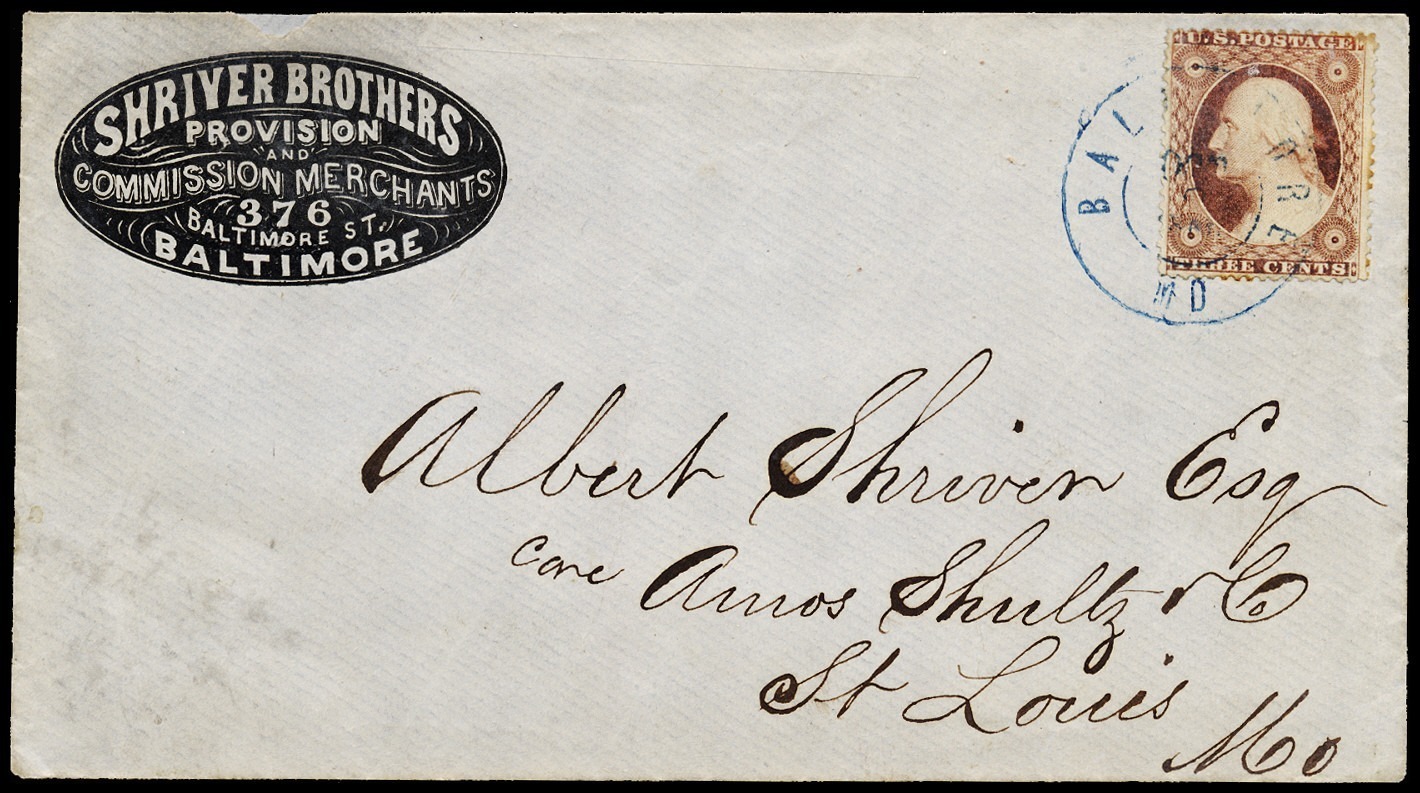 SHRIVER BROTHERS
PROVISION
AND
COMMISSION MERCHANTS
376
BALTIMORE ST.
BALTIMORE
U.S. POSTAGE
THREE CENTS
MD
Albert Shriver Esq
care Amos Shultz & Co
St Louis
Mo